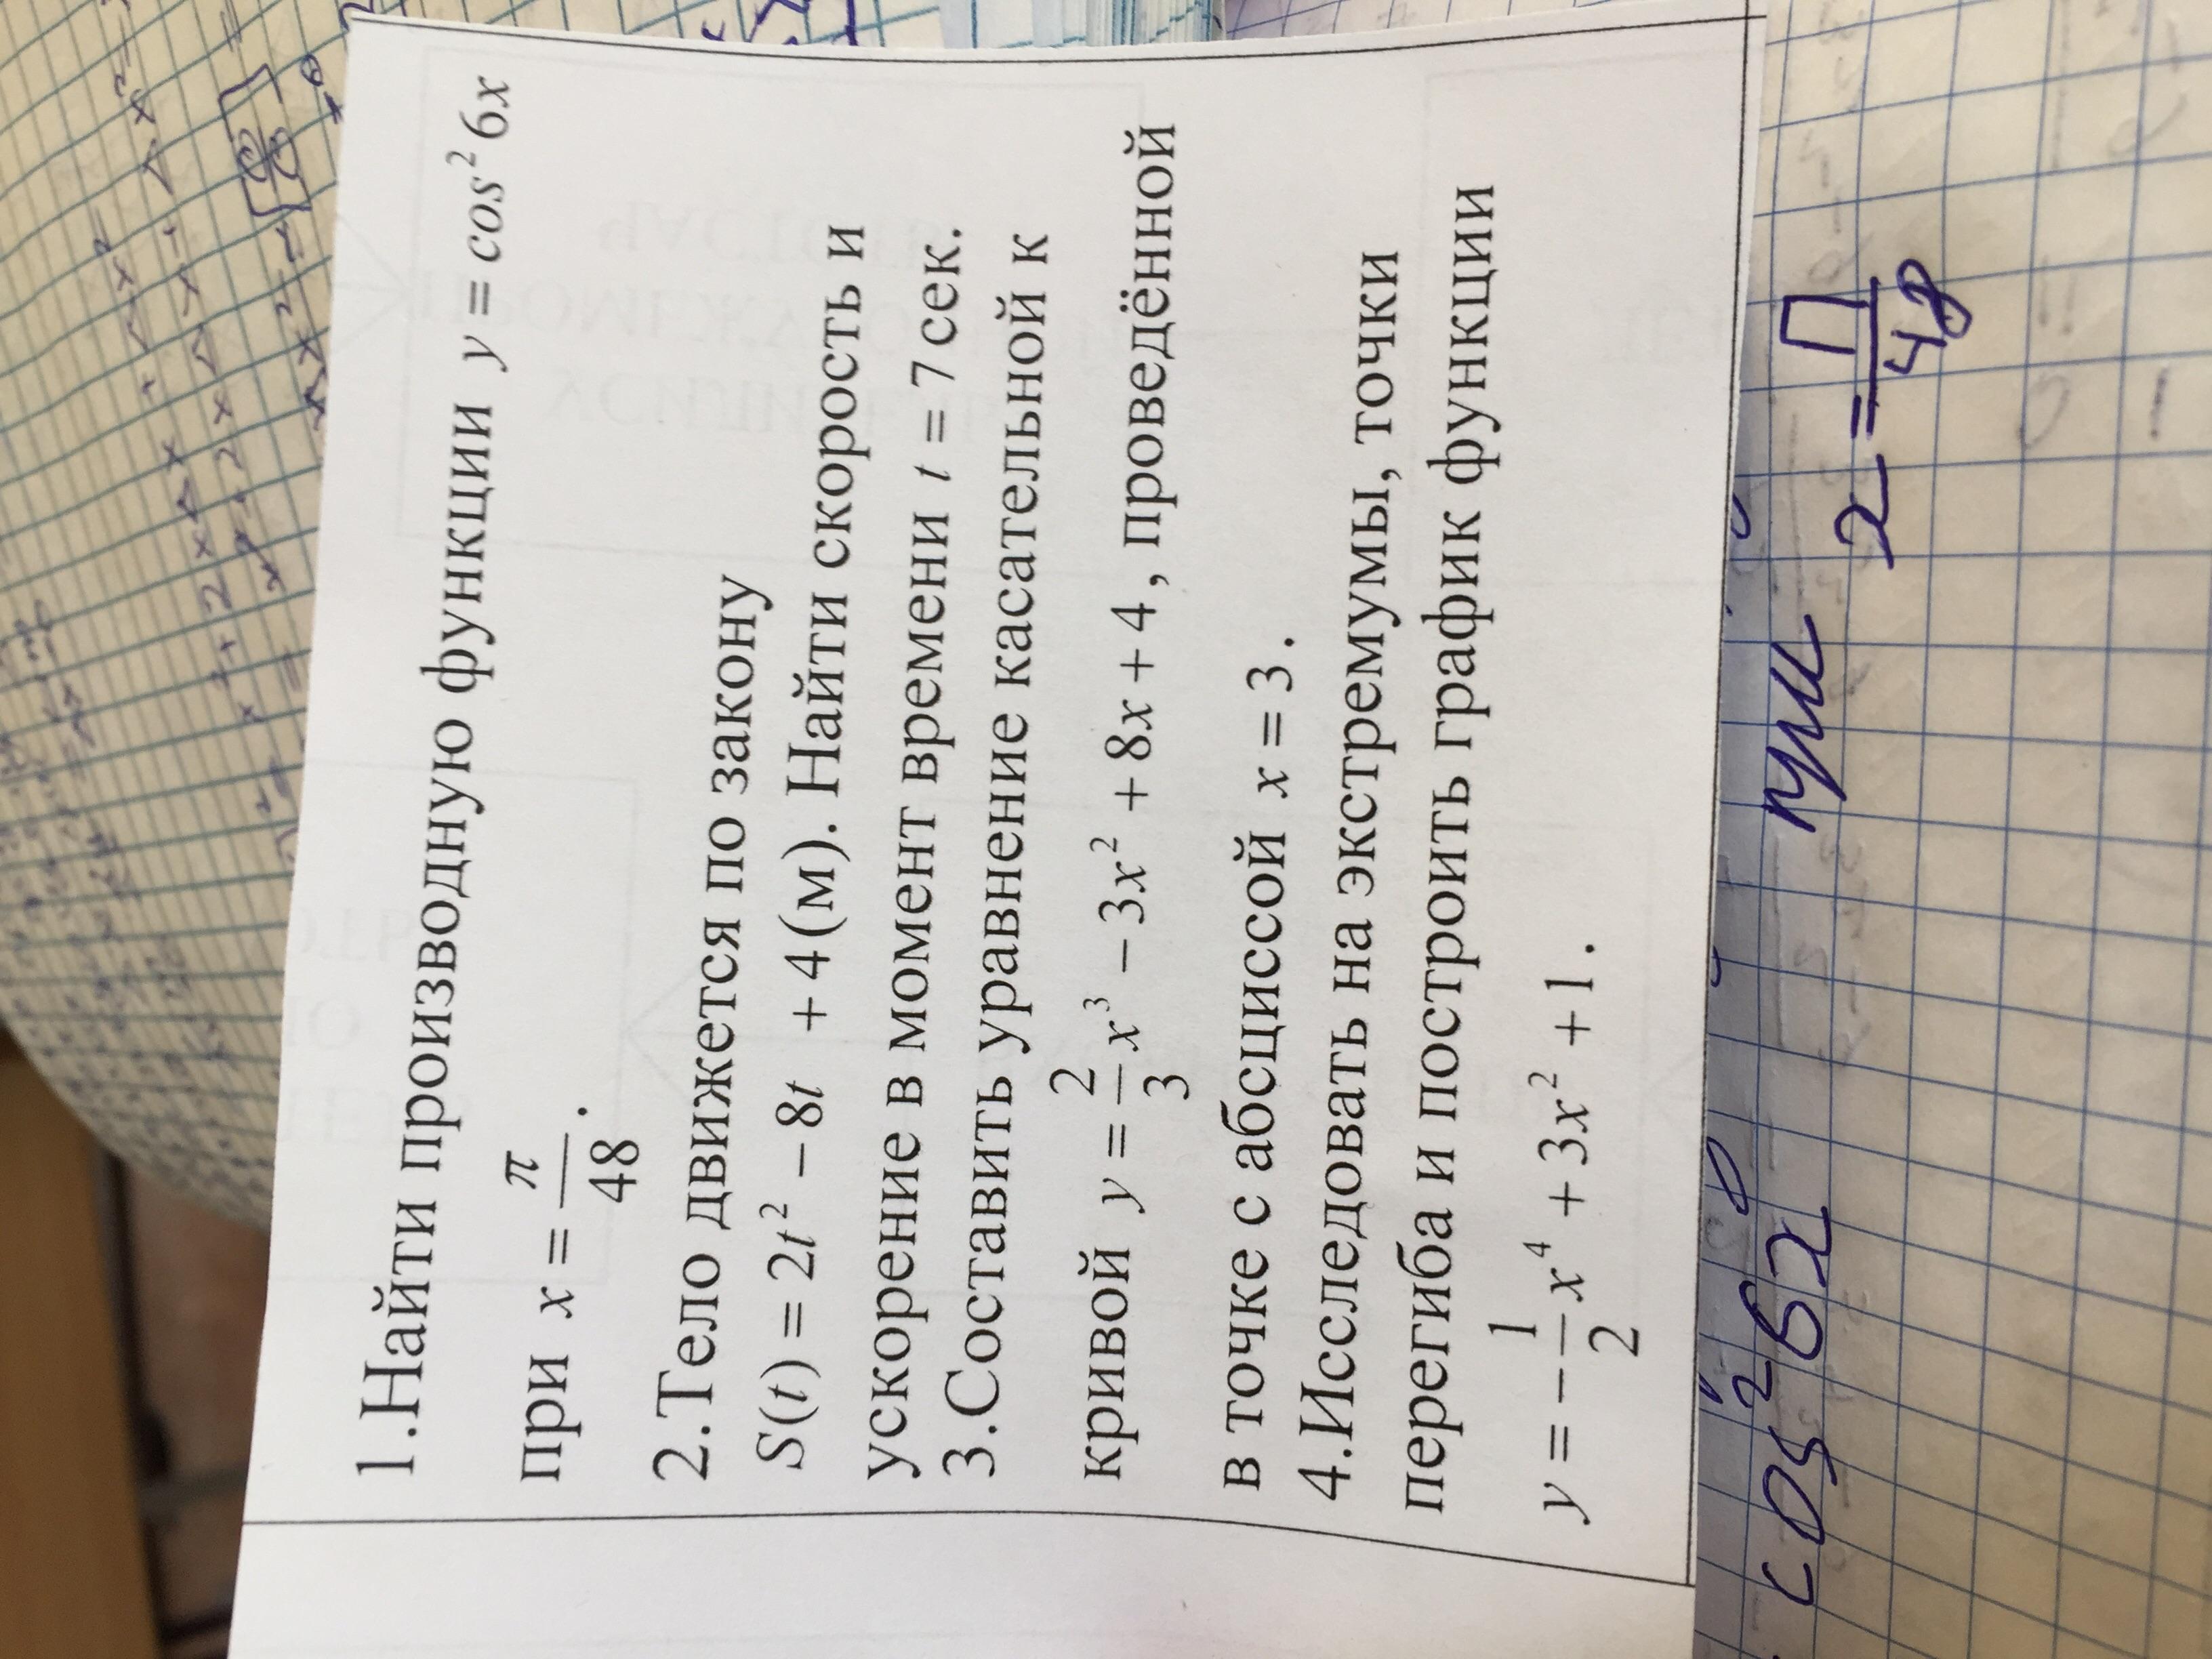 1.Найти производную функции y = cos² 6x
при x = π/48.
2.Тело движется по закону
S(t) = 2t² − 8t + 4(м). Найти скорость и
ускорение в момент времени t = 7 сек.
3.Составить уравнение касательной к
кривой y = 2/3 x³ − 3x² + 8x + 4, проведённой
в точке с абсциссой x = 3.
4.Исследовать на экстремумы, точки
перегиба и построить график функции
y = −1/2 x⁴ + 3x² + 1.
cos² 6x при x = П/48